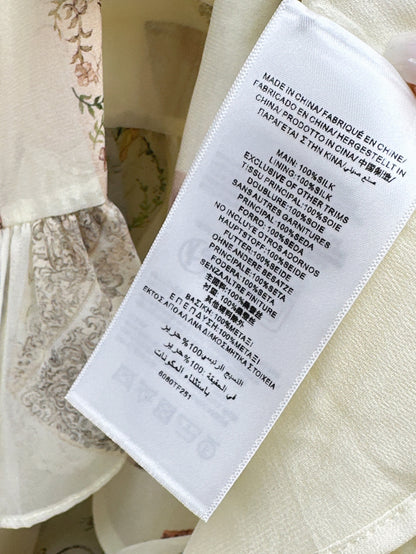 MADE IN CHINA/FABRIQUÉ EN CHINE/
FABRICADO EN CHINA/HERGESTELLT IN
CHINA/PRODOTTO IN CINA/中国制造/
ΠΑΡΑΓΕΤΑΙ ΣΤΗΝ ΚΙΝΑ/صنع في الصين
MAIN: 100%SILK
LINING:100%SILK
EXCLUSIVE OF OTHER TRIMS
TISSU PRINCIPAL:100%SOIE
DOUBLURE:100%SOIE
SANS AUTRES GARNITURES
PRINCIPAL:100%SEDA
FORRO:100%SEDA
NO INCLUYE OTROS ADORNOS
HAUPTSTOFF:100%SEIDE
OHNE ANDERE BESÄTZE
FODERA:100%SETA
SENZA ALTRE FINITURE
主面料:100%
衬里:100%
ΒΑΣΙΚΗ:100%ΜΕΤΑΞΙ
ΕΠΕΝΔΥΣΗ:100%ΜΕΤΑΞΙ
ΕΚΤΟΣ ΑΠΟ ΑΛΛΑ ΔΙΑΚΟΣΜΗΤΙΚΑ ΣΤΟΙΧΕΙΑ
النسيج الرئيسي:100% حرير
100% حرير
باستثناء
6080TF251